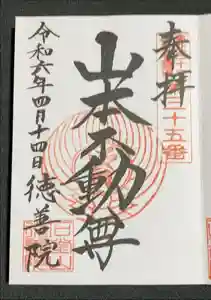 奉拝
山本不動尊
令和六年四月十四日
徳善院